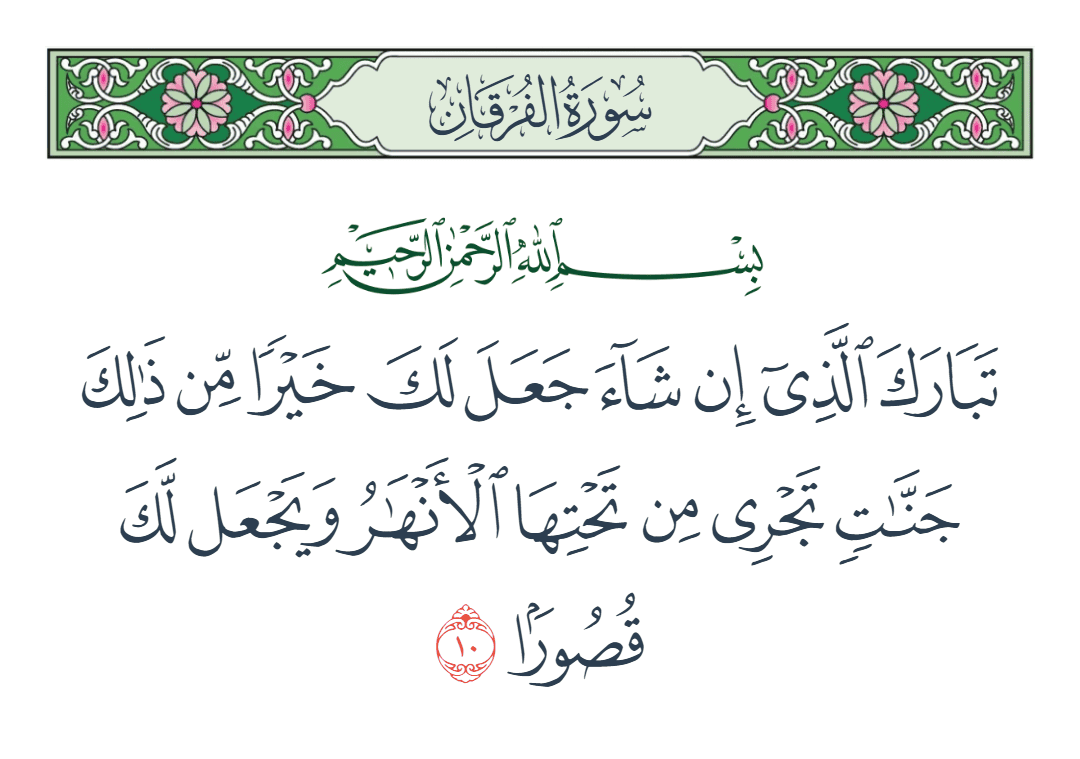 سُورَةُ الفُرْقَانِ
بِسْمِ ٱللَّهِ ٱلرَّحْمَٰنِ ٱلرَّحِيمِ
تَبَارَكَ ٱلَّذِىٓ إِن شَآءَ جَعَلَ لَكَ خَيْرًا مِّن ذَٰلِكَ
جَنَّـٰتٍ تَجْرِى مِن تَحْتِهَا ٱلْأَنْهَـٰرُ وَيَجْعَل لَّكَ
قُصُورًۢا ١٠